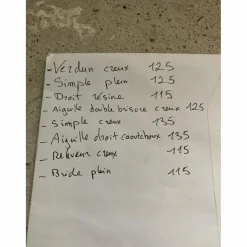 - Verdun creux 125
- Simple plein 125
- Droit résine 115
- Aiguille double bisure creux 125
- Simple creux 135
- Aiguille droit caoutchoux 135
- Releveur creux 115
- Bride plein 115